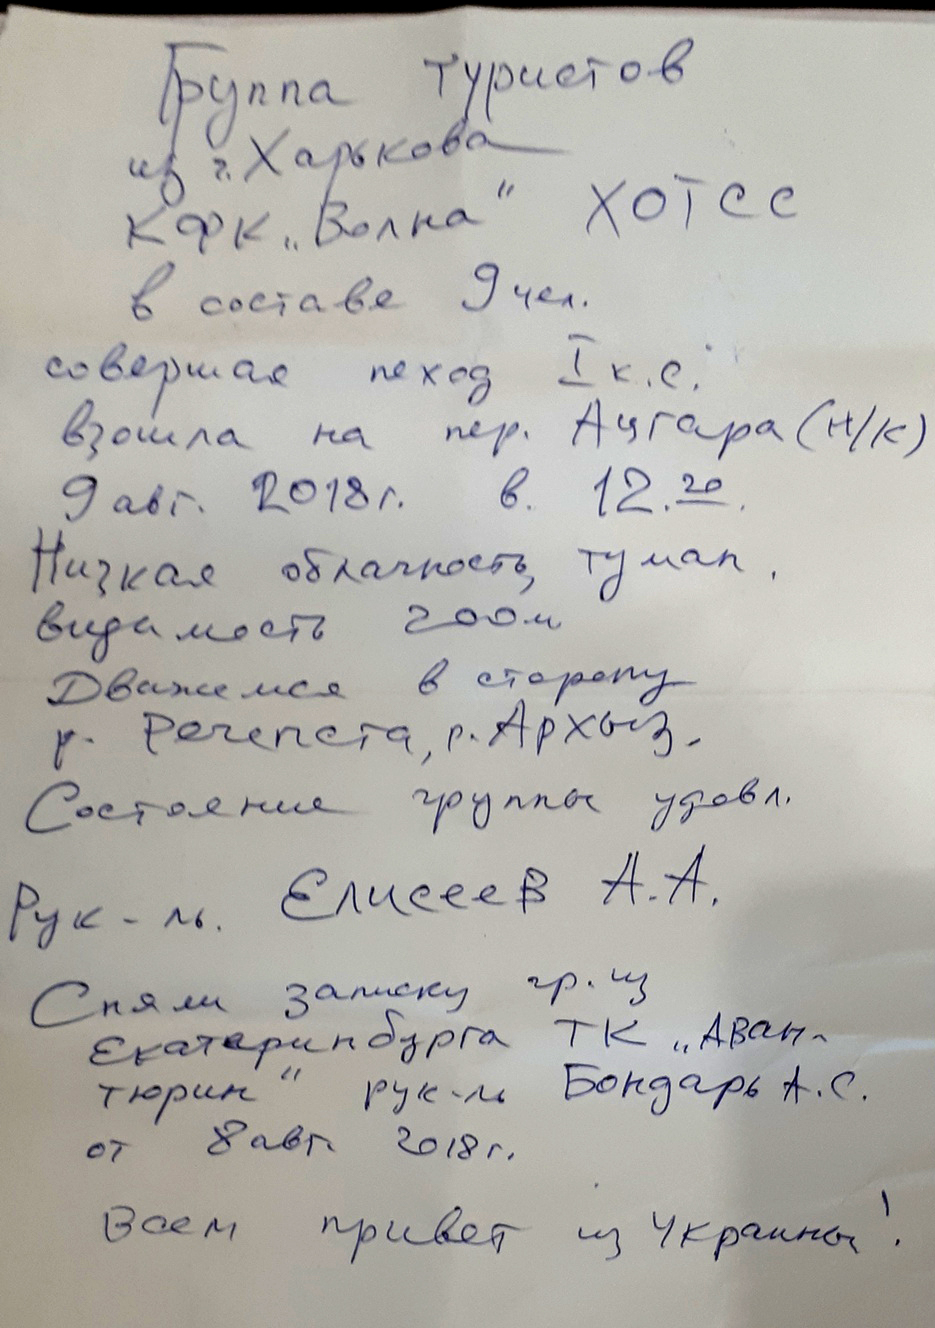 Группа туристов
из г. Харькова
КФК „Волна" ХОТСС
в составе 9 чел.
совершая поход I к.с.
взошла на пер. Ацгара (Н/К)
9 авг. 2018г. в. 12.20.
Низкая облачность, туман.
видимость 200м
Движемся в сторону
р. Речепста, р. Архыз.
Состояние группы удовл.
Рук-ль. Елисеев А.А.
Сняли записку гр. из
Екатеринбурга ТК „Аван-
тюрин" рук-ль Бондарь А.С.
от 8 авг. 2018г.
Всем привет из Украины!